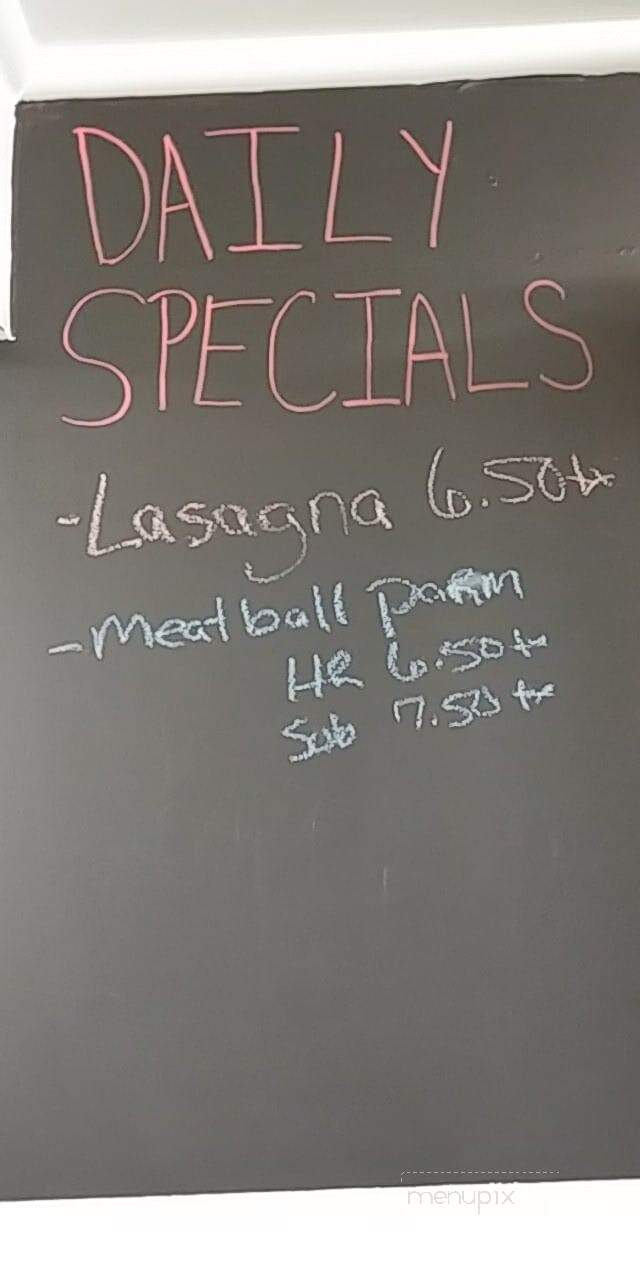 DAILY
SPECIALS
-Lasagna 6.50tx
-Meatball parm
HR 6.50tx
Sub 7.50 tx
menupix